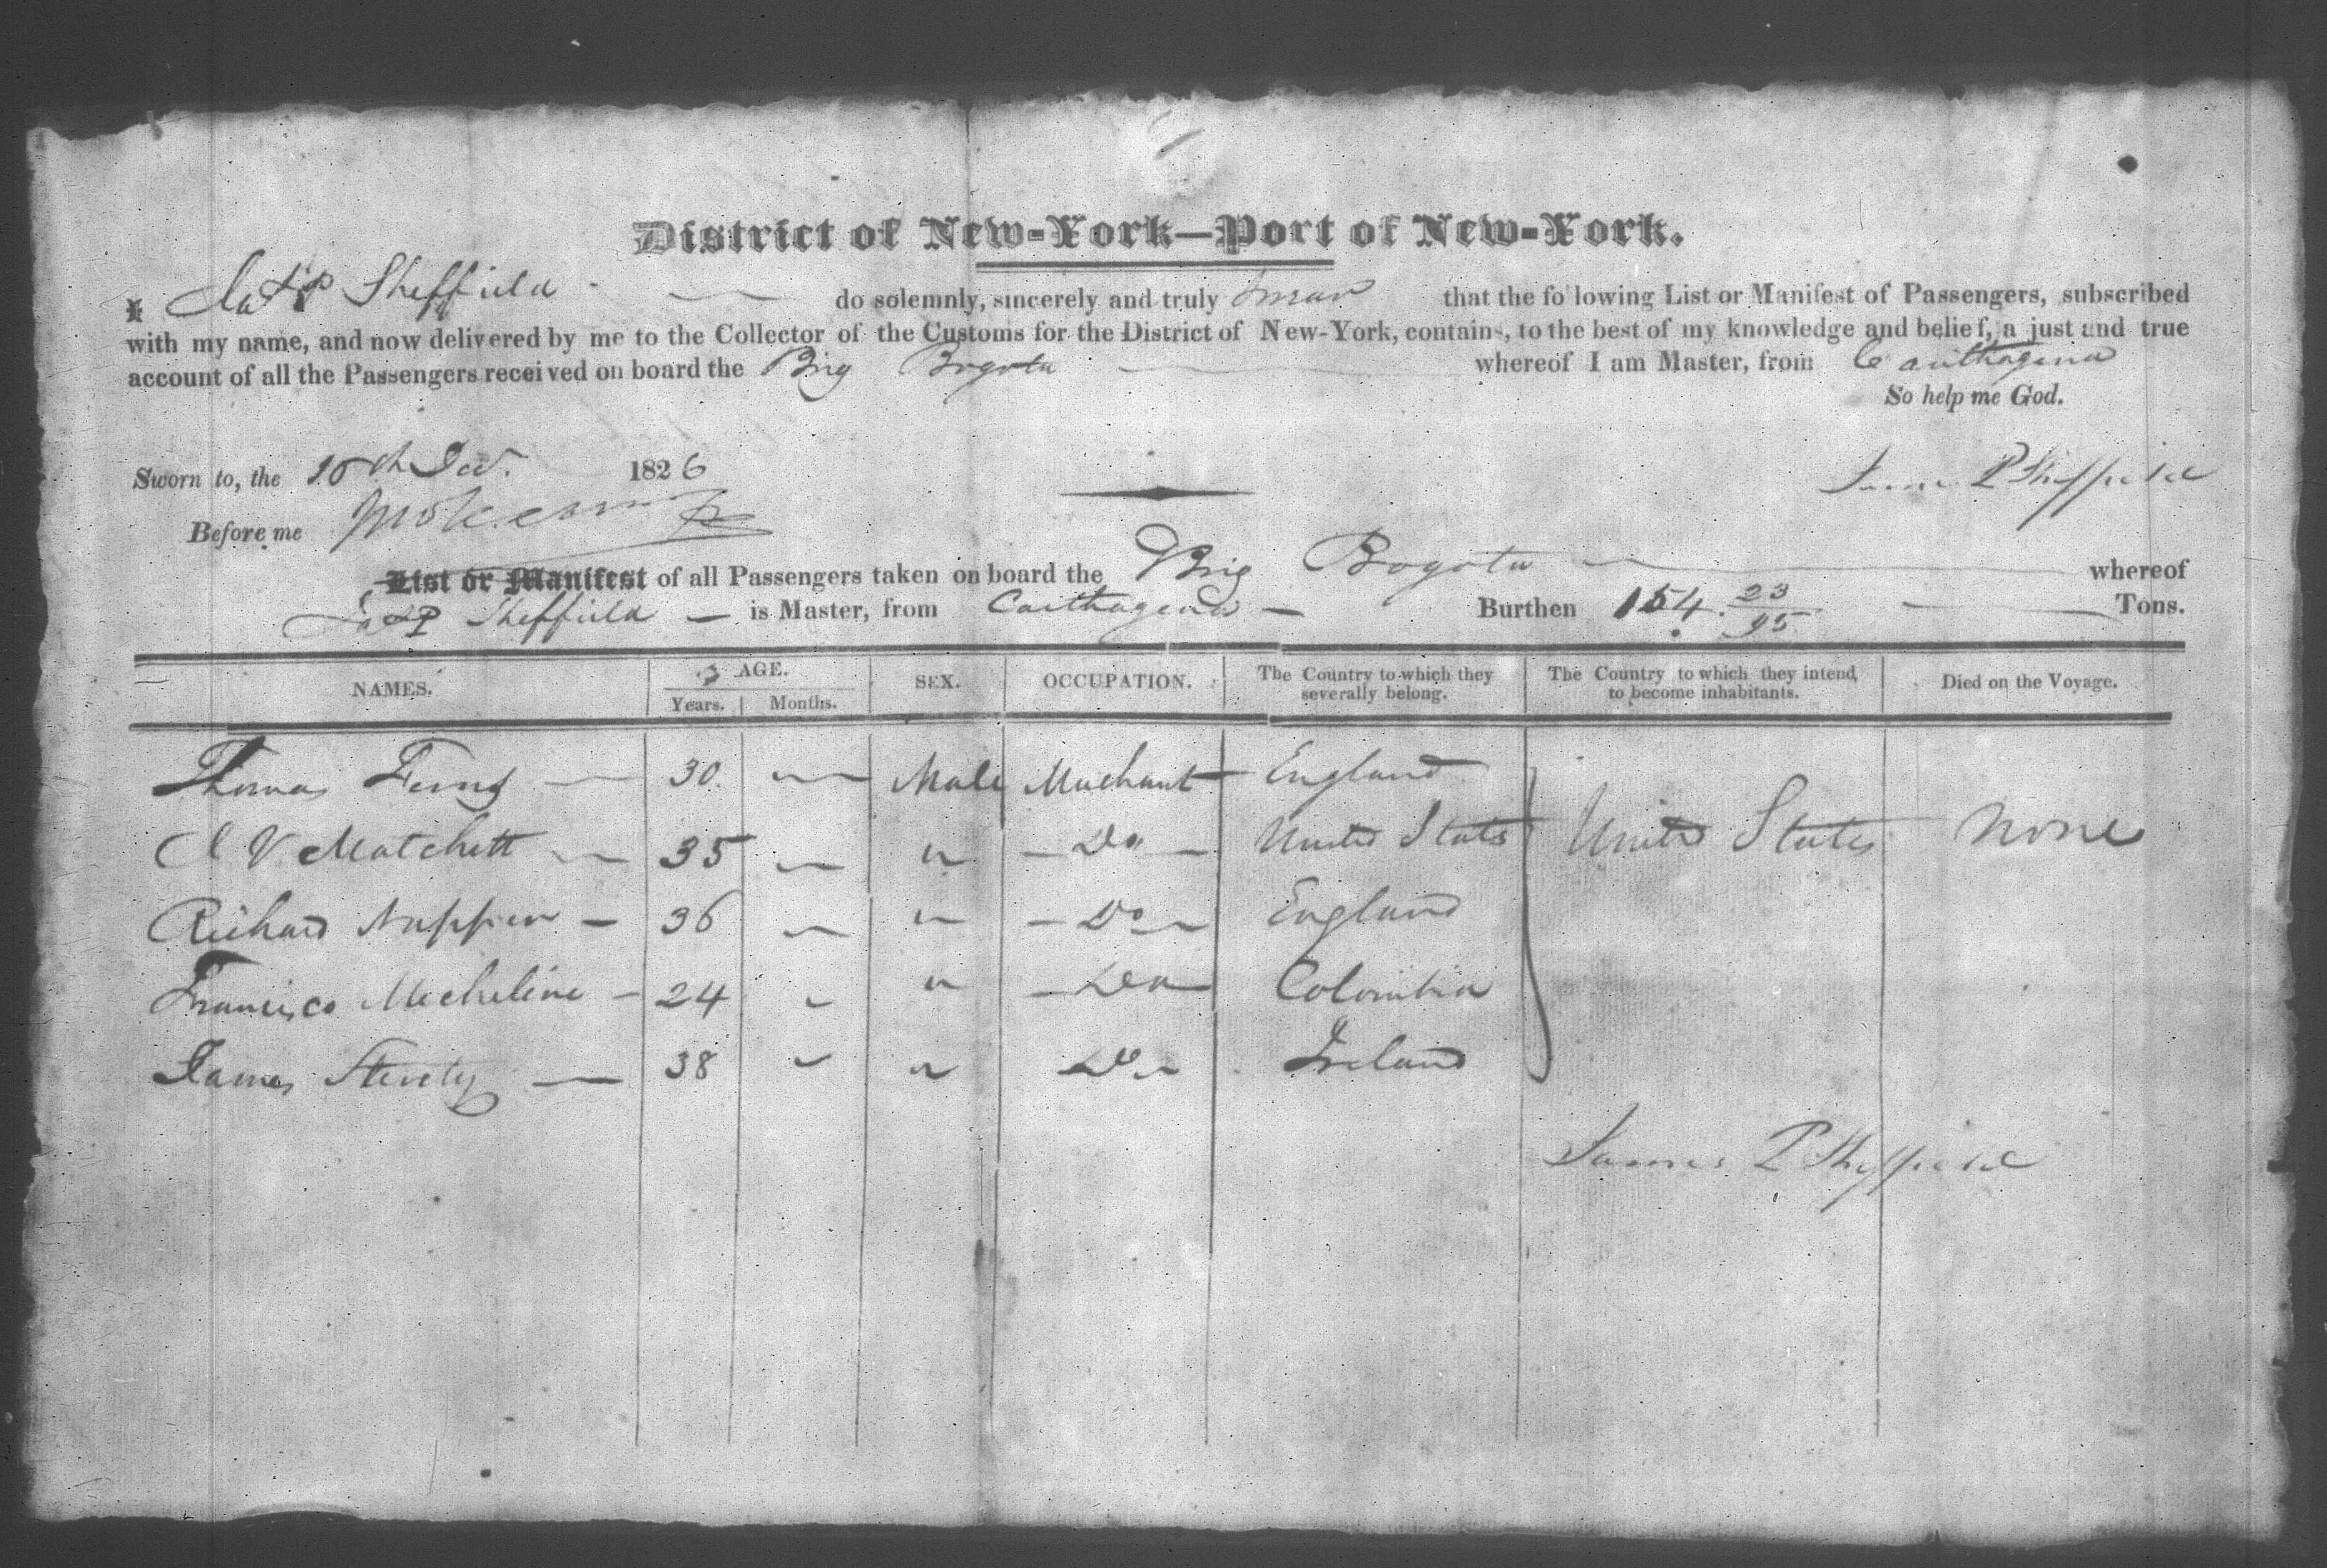 District of New-York—Port of New-York.
I Jas P Sheffield do solemnly, sincerely and truly swear that the following List or Manifest of Passengers, subscribed
with my name, and now delivered by me to the Collector of the Customs for the District of New-York, contains, to the best of my knowledge and belief, a just and true
account of all the Passengers received on board the Brig Bogota whereof I am Master, from Carthagena
So help me God.
Sworn to, the 1826
James P Sheffield
Before me
List or Manifest of all Passengers taken on board the Brig Bogota whereof
Jas P Sheffield is Master, from Carthagena Burthen 154 23/95 Tons.
NAMES. AGE. Years. Months. SEX. OCCUPATION. The Country to which they severally belong. The Country to which they intend to become inhabitants. Died on the Voyage.
Thomas 30 — Male Merchant England
J V Matchett — 35 — " — Do — United States United States None
Richard Nappier — 36 — " — Do — England
Francisco Micheline — 24 — " — Do — Colombia
James — 38 — " Do Ireland
James P Sheffield